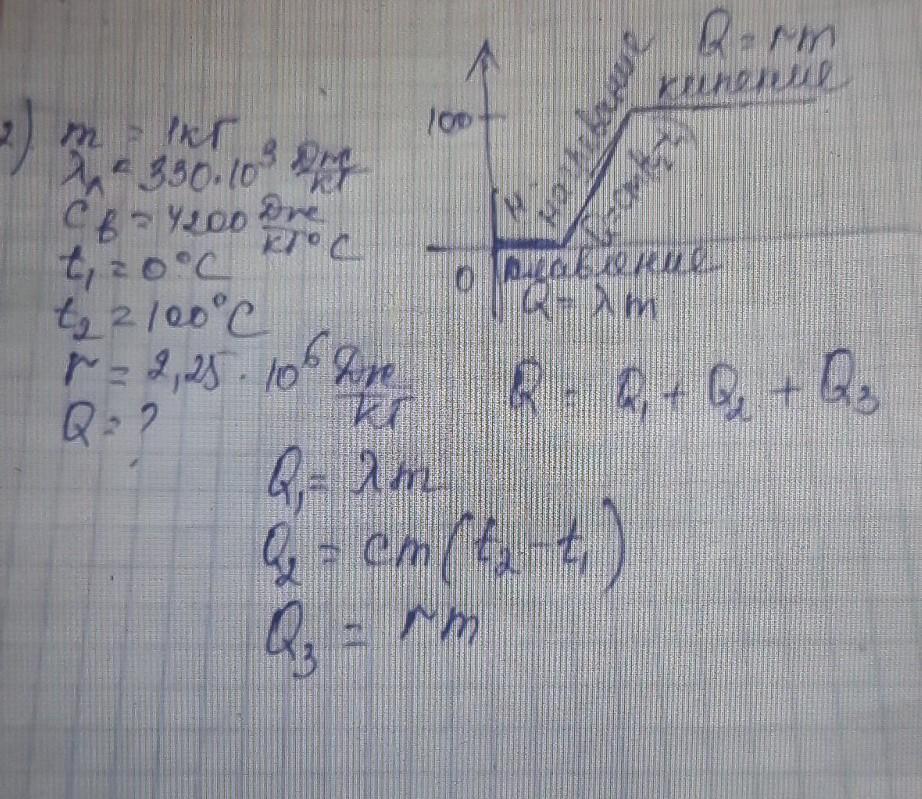 2) m = 1кг
λл = 330·10³ Дж/кг
Cв = 4200 Дж/кг°C
t₁ = 0°C
t₂ = 100°C
r = 2,25 · 10⁶ Дж/кг
Q = ?
Q = rm
кипение
100
нагревание
0
плавление
Q = λm
Q = Q₁ + Q₂ + Q₃
Q₁ = λm
Q₂ = cm(t₂ - t₁)
Q₃ = rm